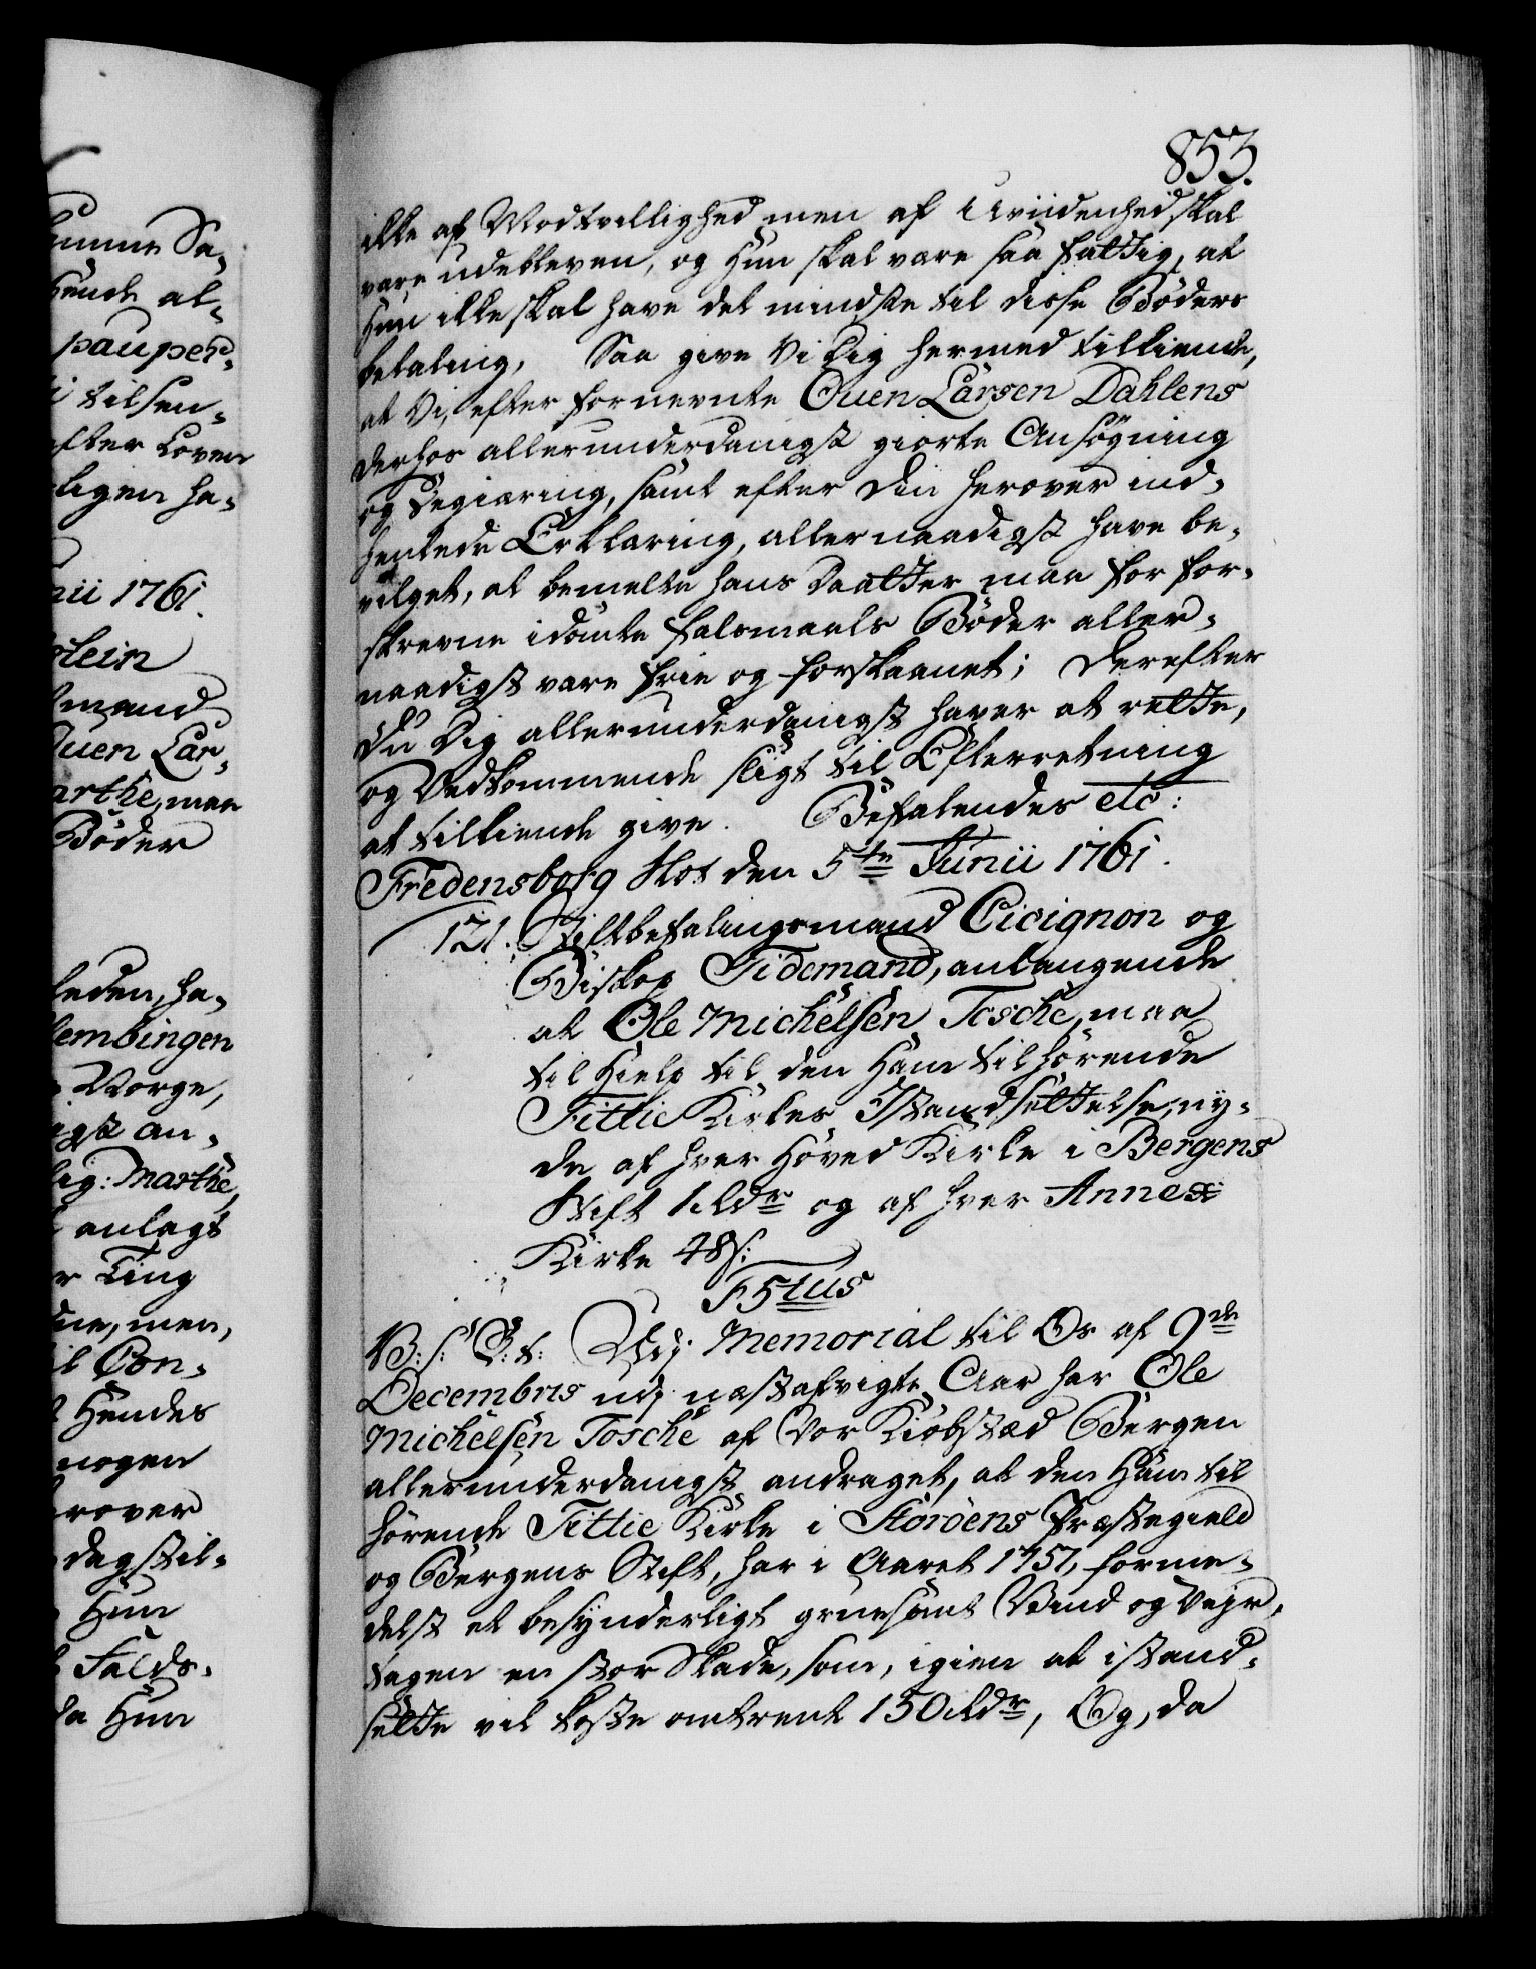 853.
ikke af Modtvillighed men af Uviidenhed skal
være udebleven, og Hun skal være saa fattig, at
Hun ikke skal have det mindste til disse Bøders
betaling, Saa give Vi Dig hermed tilkiende,
at Vi, efter fornevnte Ouen Larsen Dahlens
derhos allerunderdanigst giorte Ansøgning
og Begiæring, samt efter Din herover ind-
hentede Erklæring, allernaadigst have be-
vilget, at bemelte hans Daatter maa for for-
skrevne idømte Falsmaals Bøder aller-
naadigst være frie og forskaanet; Derefter
Du Dig allerunderdanigst haver at rette,
og Vedkommende sligt til Efterretning
at tilkiende give. Befalendes etc:
Fredensborg Slot den 5te Junii 1761.
121. Stiftbefalingsmand Cicignon og
Biskop Tidemand, anlangende
at Ole Michelsen Tosche, maa
til Hielp til den Ham tilhørende
Fittie Kirkes Istandsettelse, ny-
de af hver Hoved Kirke i Bergens
Stift 1 Rdr og af hver Annex
Kirke 48 s:
F 5tus
V: S: G: T: Udj Memorial til Os af 9de
Decembris udj næstafvigte Aar har Ole
Michelsen Tosche af Vor Kiøbstæd Bergen
allerunderdanigst andraget, at den Ham til
hørende Fittie Kirke i Storöens Præstegield
og Bergens Stift, har i Aaret 1757, forme-
delst et besynderligt gruesomt Vind og Vejr,
tagen en stor Skade, som, igien at istand-
sette vil koste omtrent 150 Rdr, Og, da
unne Sa-
Hende al-
pauper-
tilsen-
efter Loven
ligen ha-
nii 1761.
stein
mand
Ouen Lar-
arthe, maa
Bøder
leden, ha-
lembingen
Norge,
igst an-
lig: Marthe
anlagt
Ting
ne, men,
il Con-
Hendes
nogen
rover
dagstil-
Hun
Falds-
da Hun